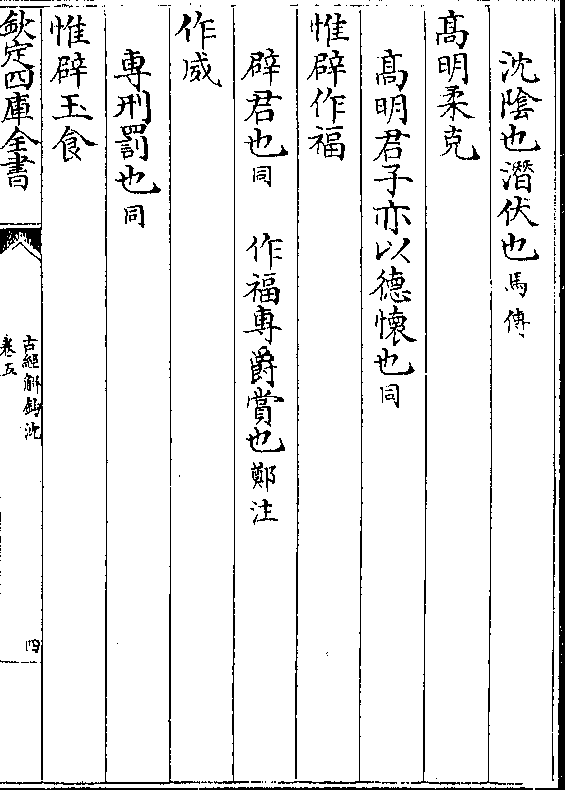 沈陰也潛伏也馬傳
高明柔克
高明君子亦以德懷也同
惟辟作福
辟君也同　作福專爵賞也鄭注
作威
專刑罰也同
惟辟玉食
欽定四庫全書
古經解鉤沈
卷五
四